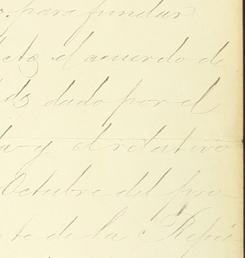 para fundar
el acuerdo de
dado por el
y el relativo
Octubre del pro
de la Repú